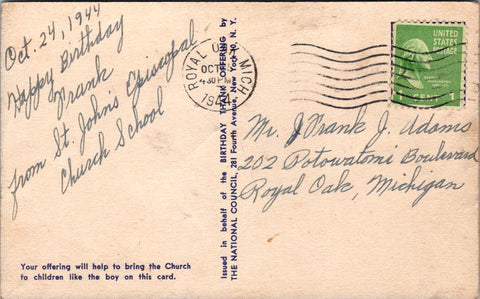 Oct. 24, 1944
Happy Birthday
Frank
from St. John's Episcopal
Church School
Your offering will help to bring the Church
to children like the boy on this card.
Issued in behalf of the BIRTHDAY THANK OFFERING by
THE NATIONAL COUNCIL, 281 Fourth Avenue, New York 10, N. Y.
ROYAL OAK MICH
OCT
4 30 PM
UNITED
STATES
POSTAGE
1 CENT 1
Mr. Frank J. Adams
202 Potowatomi Boulevard
Royal Oak, Michigan